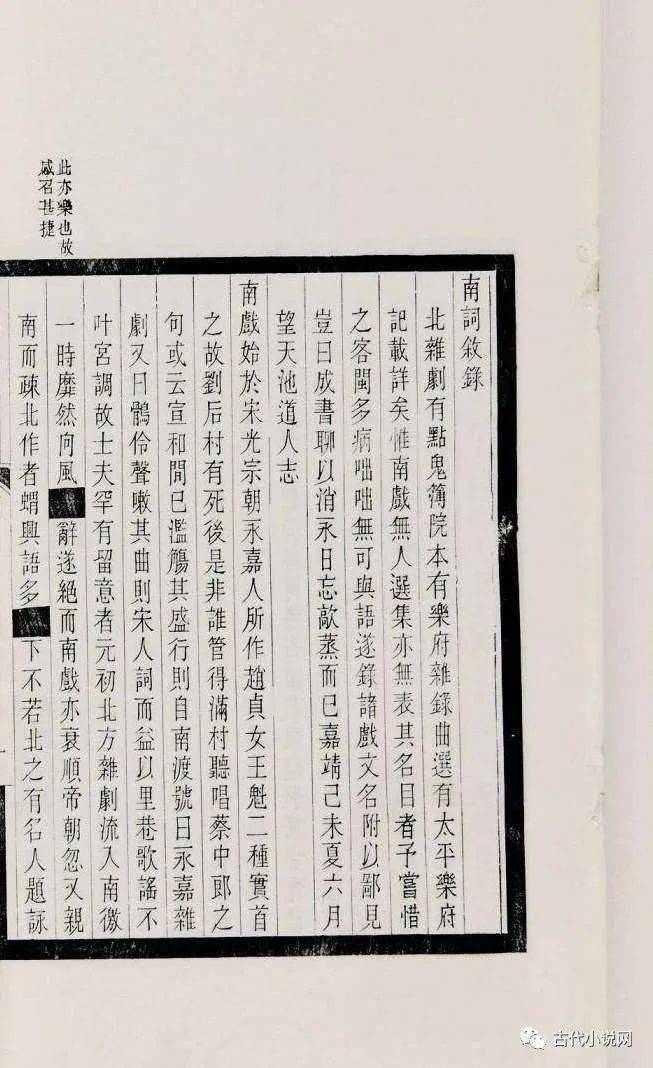 此亦樂也故
感召甚捷
南詞敘錄
北雜劇有點鬼簿院本有樂府雜錄曲選有太平樂府
記載詳矣惟南戲無人選集亦無表其名目者予嘗惜
之客閩多病咄咄無可與語遂錄諸戲文名附以鄙見
豈曰成書聊以消永日忘歊蒸而已嘉靖己未夏六月
望天池道人志
南戲始於宋光宗朝永嘉人所作趙貞女王魁二種實首
之故劉后村有死後是非誰管得滿村聽唱蔡中郎之
句或云宣和間已濫觴其盛行則自南渡號曰永嘉雜
劇又曰鶻伶聲嗽其曲則宋人詞而益以里巷歌謠不
叶宮調故士夫罕有留意者元初北方雜劇流入南徼
一時靡然向風■辭遂絕而南戲亦衰順帝朝忽又親
南而疎北作者蝟興語多■下不若北之有名人題詠
古代小说网